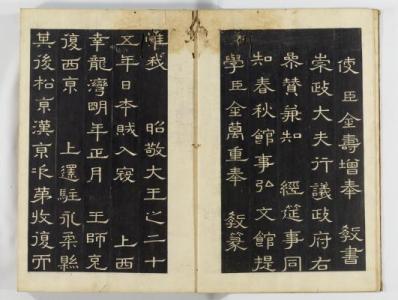 使臣金壽增奉 敎書
崇政大夫行議政府右
叅贊兼知 經筵事同
知春秋館事弘文館提
學臣金萬重奉 敎篆
惟我 昭敬大王之二十
五年日本賊入寇 上西
幸龍灣明年正月 王師克
復西京 上還駐永柔縣
其後松京漢京次第收復而